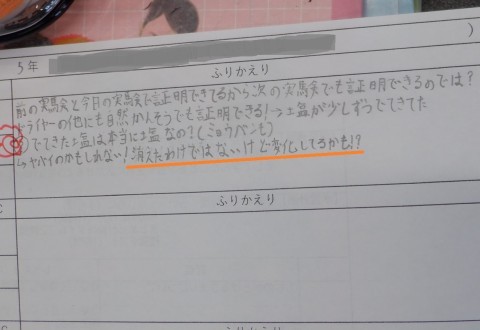 5年
)
ふりかえり
前の実験と今日の実験で証明できてるから次の実験でも証明できるのでは?
ドライヤーの他にも自然かんそうでも証明できる!→塩が少しずつでてきた
でてきた塩は本当に塩なの?(ミョウバンも)
↳ヤバイのかもしれない!消えたわけではないけど変化してるかも!?
ふりかえり
ふりかえり